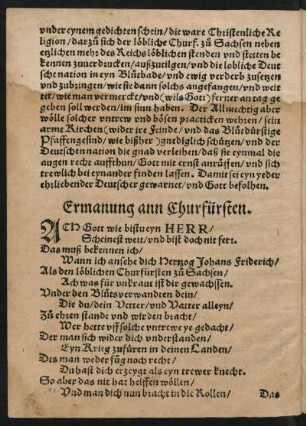 vnder eynem gedichten schein/ die ware Christenliche Re
ligion/ darzů sich der löbliche Churf. zů Sachsen neben
etzlichen mehr des Reichs löblichen stenden vnd stetten be
kennen zuuerdrucken/ außzutilgen/ vnd die löbliche Deut
sche nation in eyn Blůtbade/ vnd ewig verderb zusetzen
vnd zubringen/ wie sie dann solchs angefangen/ vnd weit
ter/ wie man vermerckt/ vnd (wils Gott) ferner an tag ge
geben soll werden/ im sinn haben. Der Allmechtig aber
wölle solcher vntrew vnd bösen practicken wehren/ sein
arme Kirchen (wider ire Feinde/ vnd das Blůdürstige
Pfaffengesind/ wie bißher) gnediglich schützen/ vnd der
Deutschen nation die gnad verleihen/ daß sie eynmal die
augen recht auffthun/ Gott mit ernst anrüffen/ vnd sich
trewlich bey eynander finden lassen. Damit sei eyn yeder
ehrliebender Deutscher gewarnet/ vnd Gott befolhen.
Ermanung ann Churfürsten.
ACh Gott wie bistu eyn HERR/
Scheinest weit/ vnd bist doch nit fern.
Das muß bekennen ich/
Wann ich ansehe dich Hertzog Johans Friderich/
Als den löblichen Churfürsten zů Sachsen/
Ach was für vnkraut ist dir gewachssen.
Vnder den Blůtsverwandten dein/
Die du/ dein Vetter/ vnd Vatter alleyn/
Zů ehren stande vnd wirden bracht/
Wer hette vff solche vntrewe ye gedacht/
Der man sich wider dich vnderstanden/
Eyn Krieg zufüren in deinen Landen/
Des man weder fůg noch recht/
Du hast dich erzeygt als eyn trewer knecht.
So aber das nit hat helffen wöllen/
Vnd man dich nun bracht in die Rollen/
Das